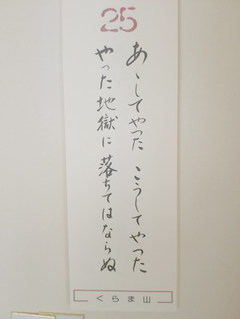 25
あゝしてやった こうしてやった
やった地獄に 落ちてはならぬ
くらま山